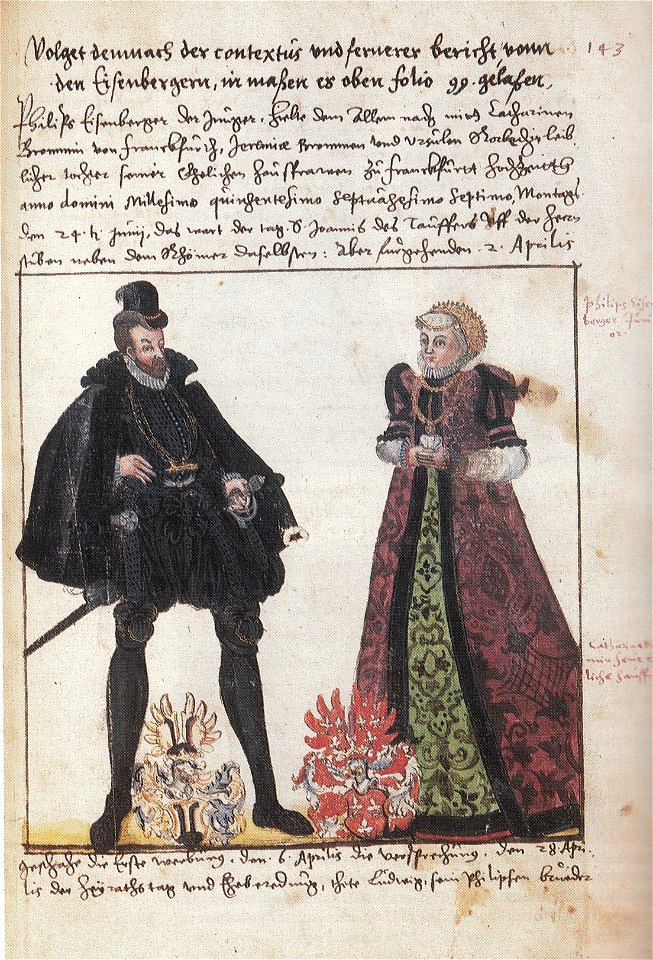 Volget demnach der contextus und fernerer bericht, vonn
den Eisenbergern, in maßen es oben folio 99. gelaßen,
143
Philips Eisenberger der Jünger, hielte dem Allem nach mitt Catharinen
Brommin von Franckfürth, Jeremiæ Brommen und Ursülen leib
licher tochter seiner Ehelichen haußfrawen zu Franckfürth hochzeitt,
anno domini Millesimo quinhentesimo Septuagesimo Septimo, Montags
den 24. Junij, das wart der tag S. Joannis des Täuffers Uff der Herrn
stüben neben dem Rhömer daselbsten: Aber fürgehenden 2. Aprilis
Philips Eisen
berger Juni
or
Catharina
liche hauß
geschahe die Erste werbung, den 6. Aprilis die versprechüng, den 28. Apri
lis der heyraths tag und Eheberedüng, thete Lüdwig, sein Philipsen brüeder